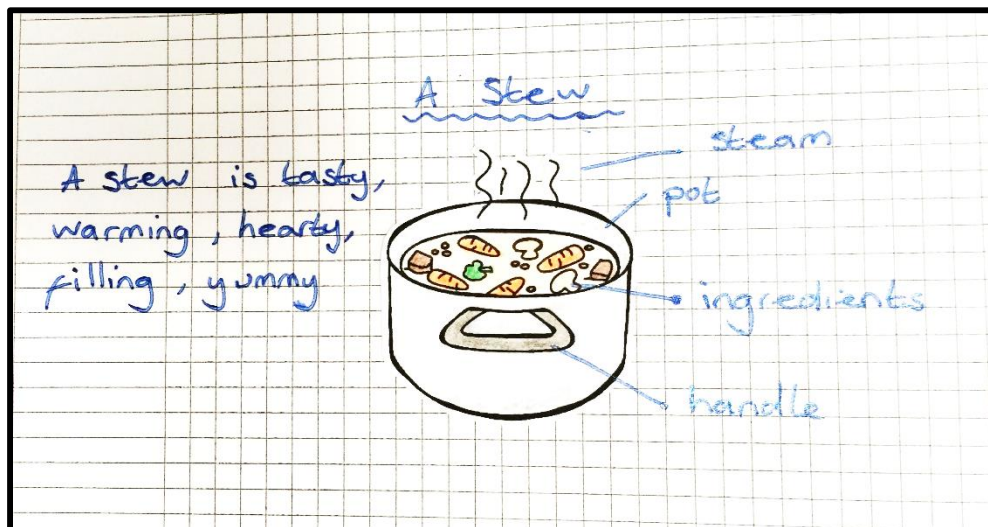 A Stew
A stew is tasty,
warming, hearty,
filling, yummy
steam
pot
ingredients
handle